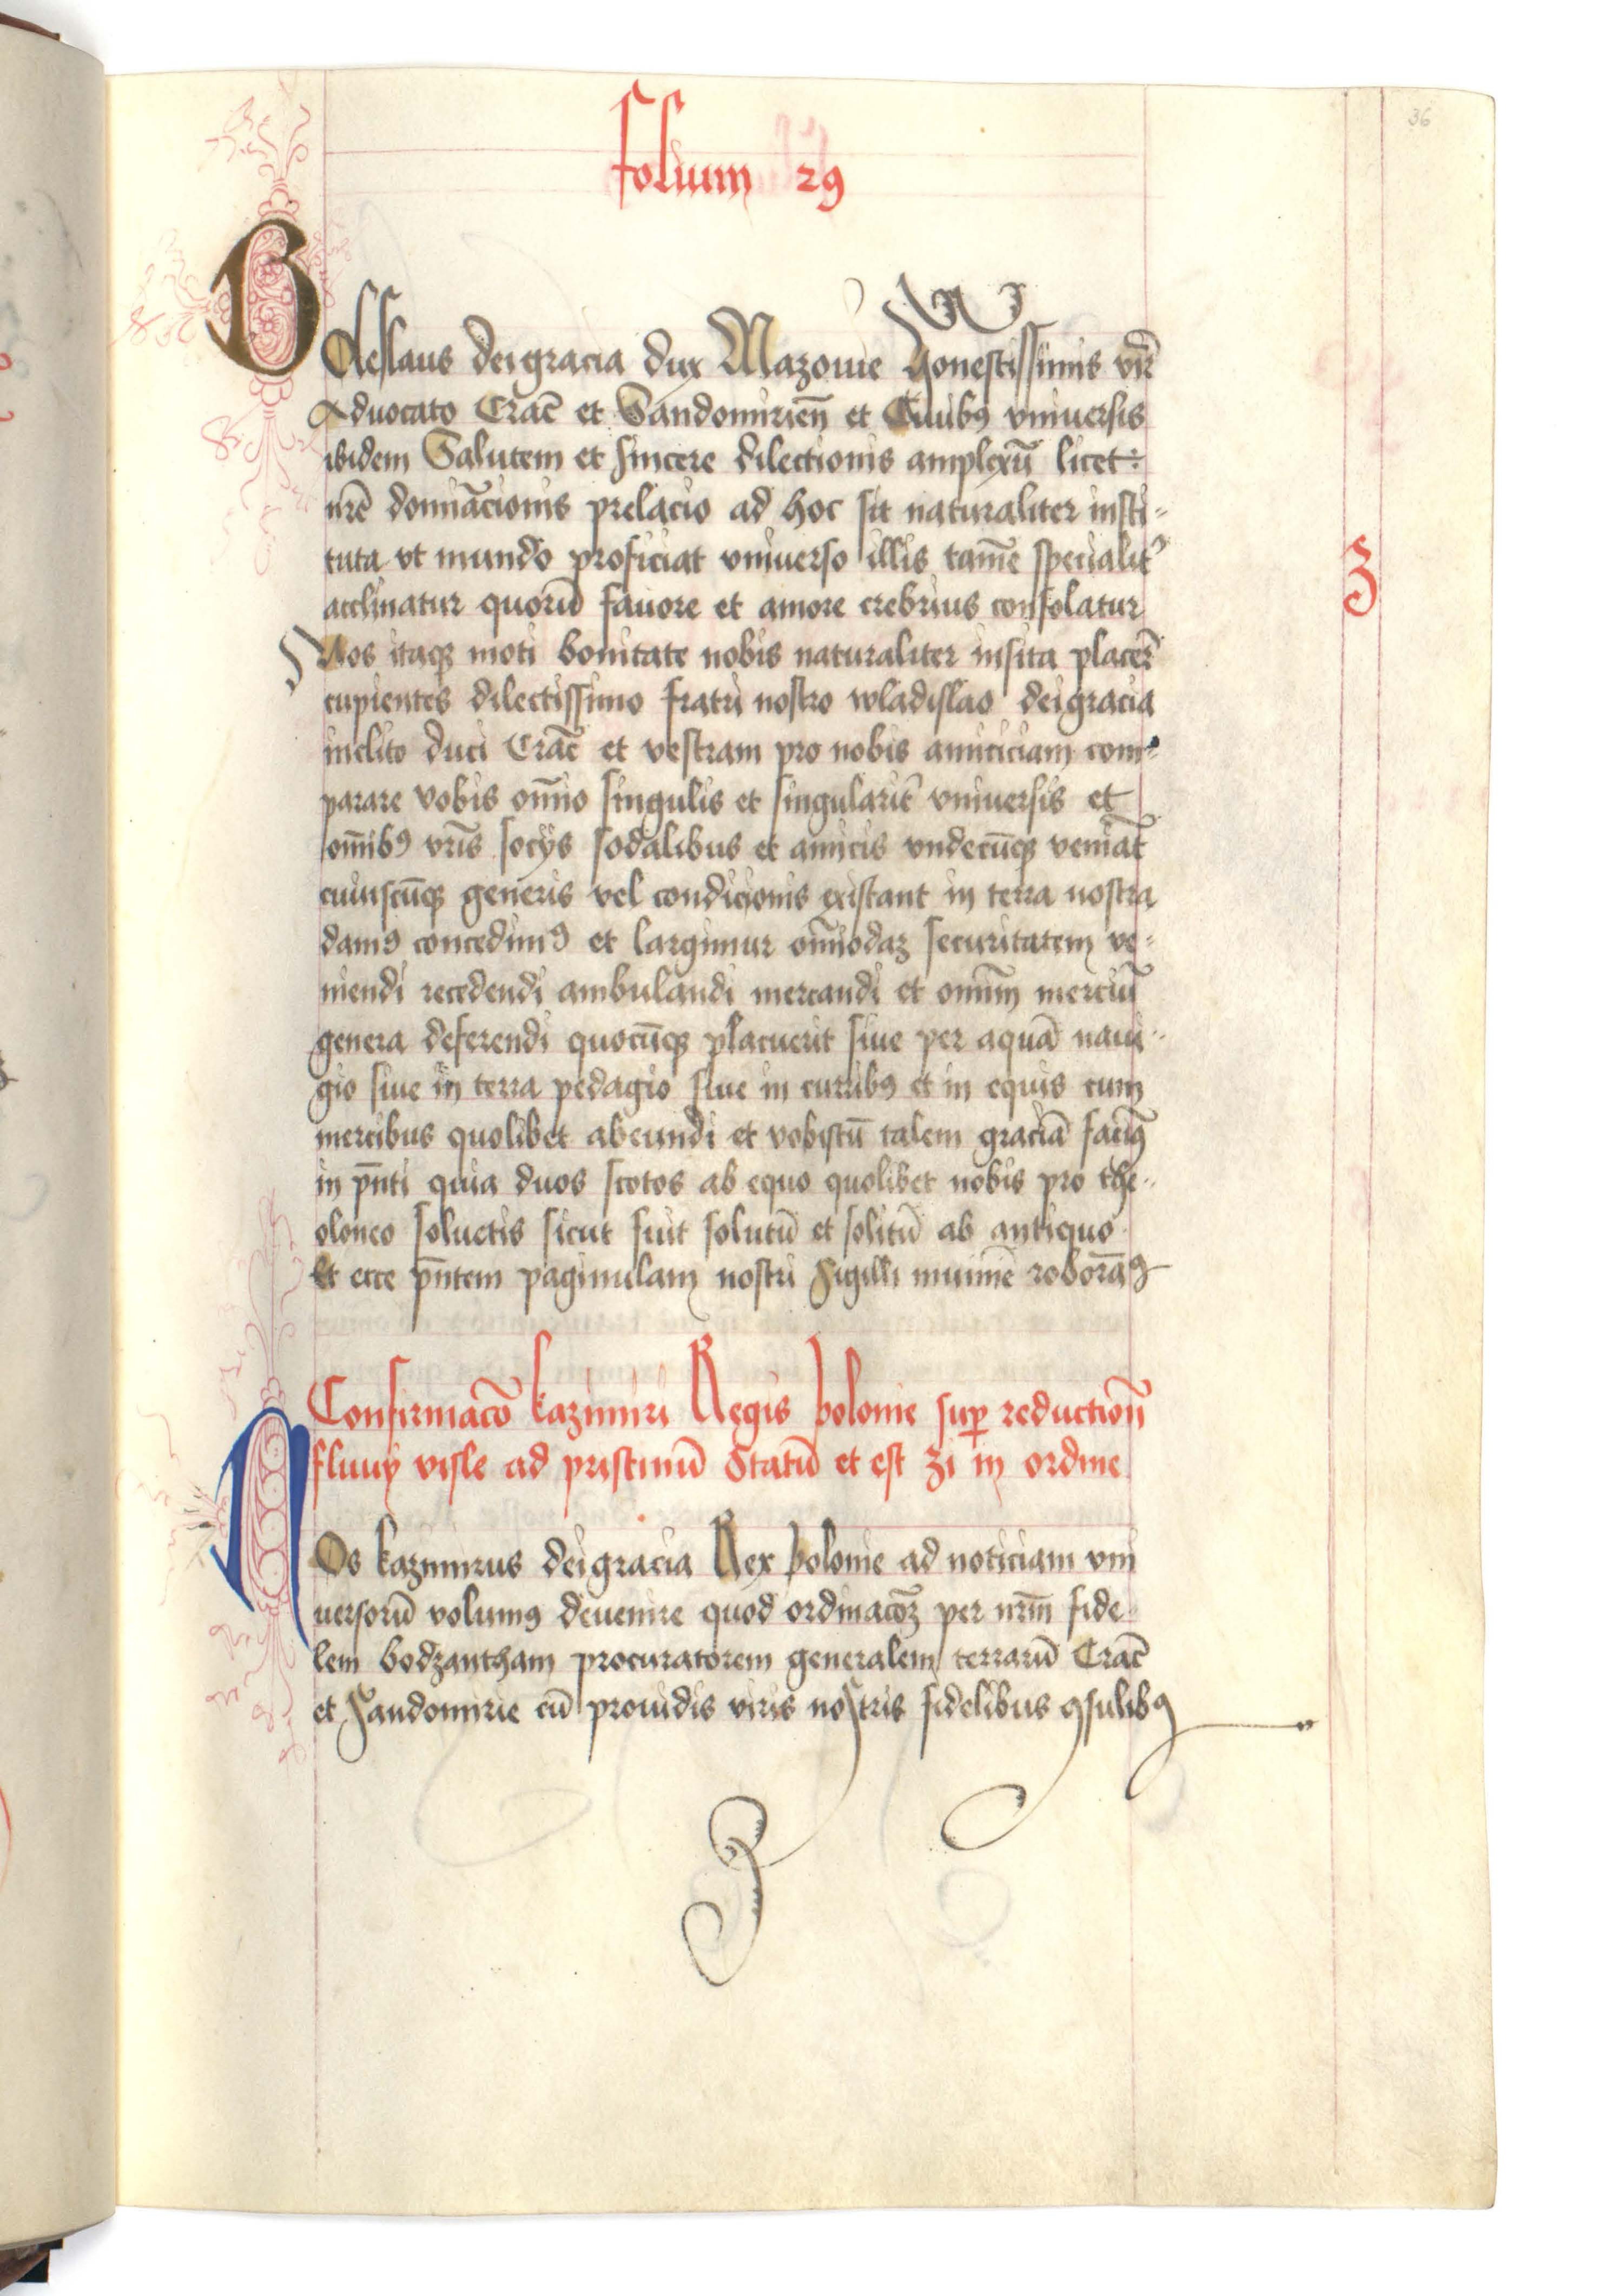 folium 29
36
Boleslaus dei gracia dux Mazouie honestissimis virẽ
Aduocato Crac̄ et Sandomirien̄ et Ciuibꝰ vniuersis
ibidem Salutem et sincere dilectionis amplexū licet :
nr̄e domīacionis prelacio ad hoc sit naturaliter insti-
tuta vt mundo proficiat vniuerso illis tamē specialit᾿
acclinatur quorū fauore et amore crebrius consolatur
Nos itaqꝫ moti bonitate nobis naturaliter insita placer̄
cupientes dilectissimo fratri nostro wladislao dei gracia
inclito duci Crac̄ et vestram pro nobis amiciciam com-
parare vobis om̄io singulis et singularit̄ vniuersis et
om̄ibꝰ vr̄is socijs sodalibus et amicis vndecūqꝫ veniāt
cuiuscūqꝫ generis vel condicionis existant in terra nostra
damꝰ concedimꝰ et largimur om̄iodaꝫ securitatem ve-
niendi recedendi ambulandi mercandi et omnīm merciū
genera deferendi quocūqꝫ placuerit siue per aquā naui-
gio siue in terra pedagio siue in curribꝰ et in equis cum
mercibus quolibet abeundi et vobiscū talem graciā facimꝰ
in pn̄ti quia duos scotos ab equo quolibet nobis pro the-
oloneo soluetis sicut fuit solutū et solitū ab antiquo
Et ecce pn̄tem paginulam nostri Sigilli munimē roboramꝰ
3
Confirmac̄o kazimiri Regis polonie suꝑ reduction̄
fluuij visle ad pristinū Statū et est 31 in ordine
Nos kazimirus dei gracia Rex polonie ad noticiam vni
uersorū volumꝰ deuenire quod ordinac̄oꝫ per nrm̄ fide-
lem bodzantham procuratorem generalem terrarū Crac̄
et Sandomirie cū prouidis viris nostris fidelibus ꝯsulibꝰ